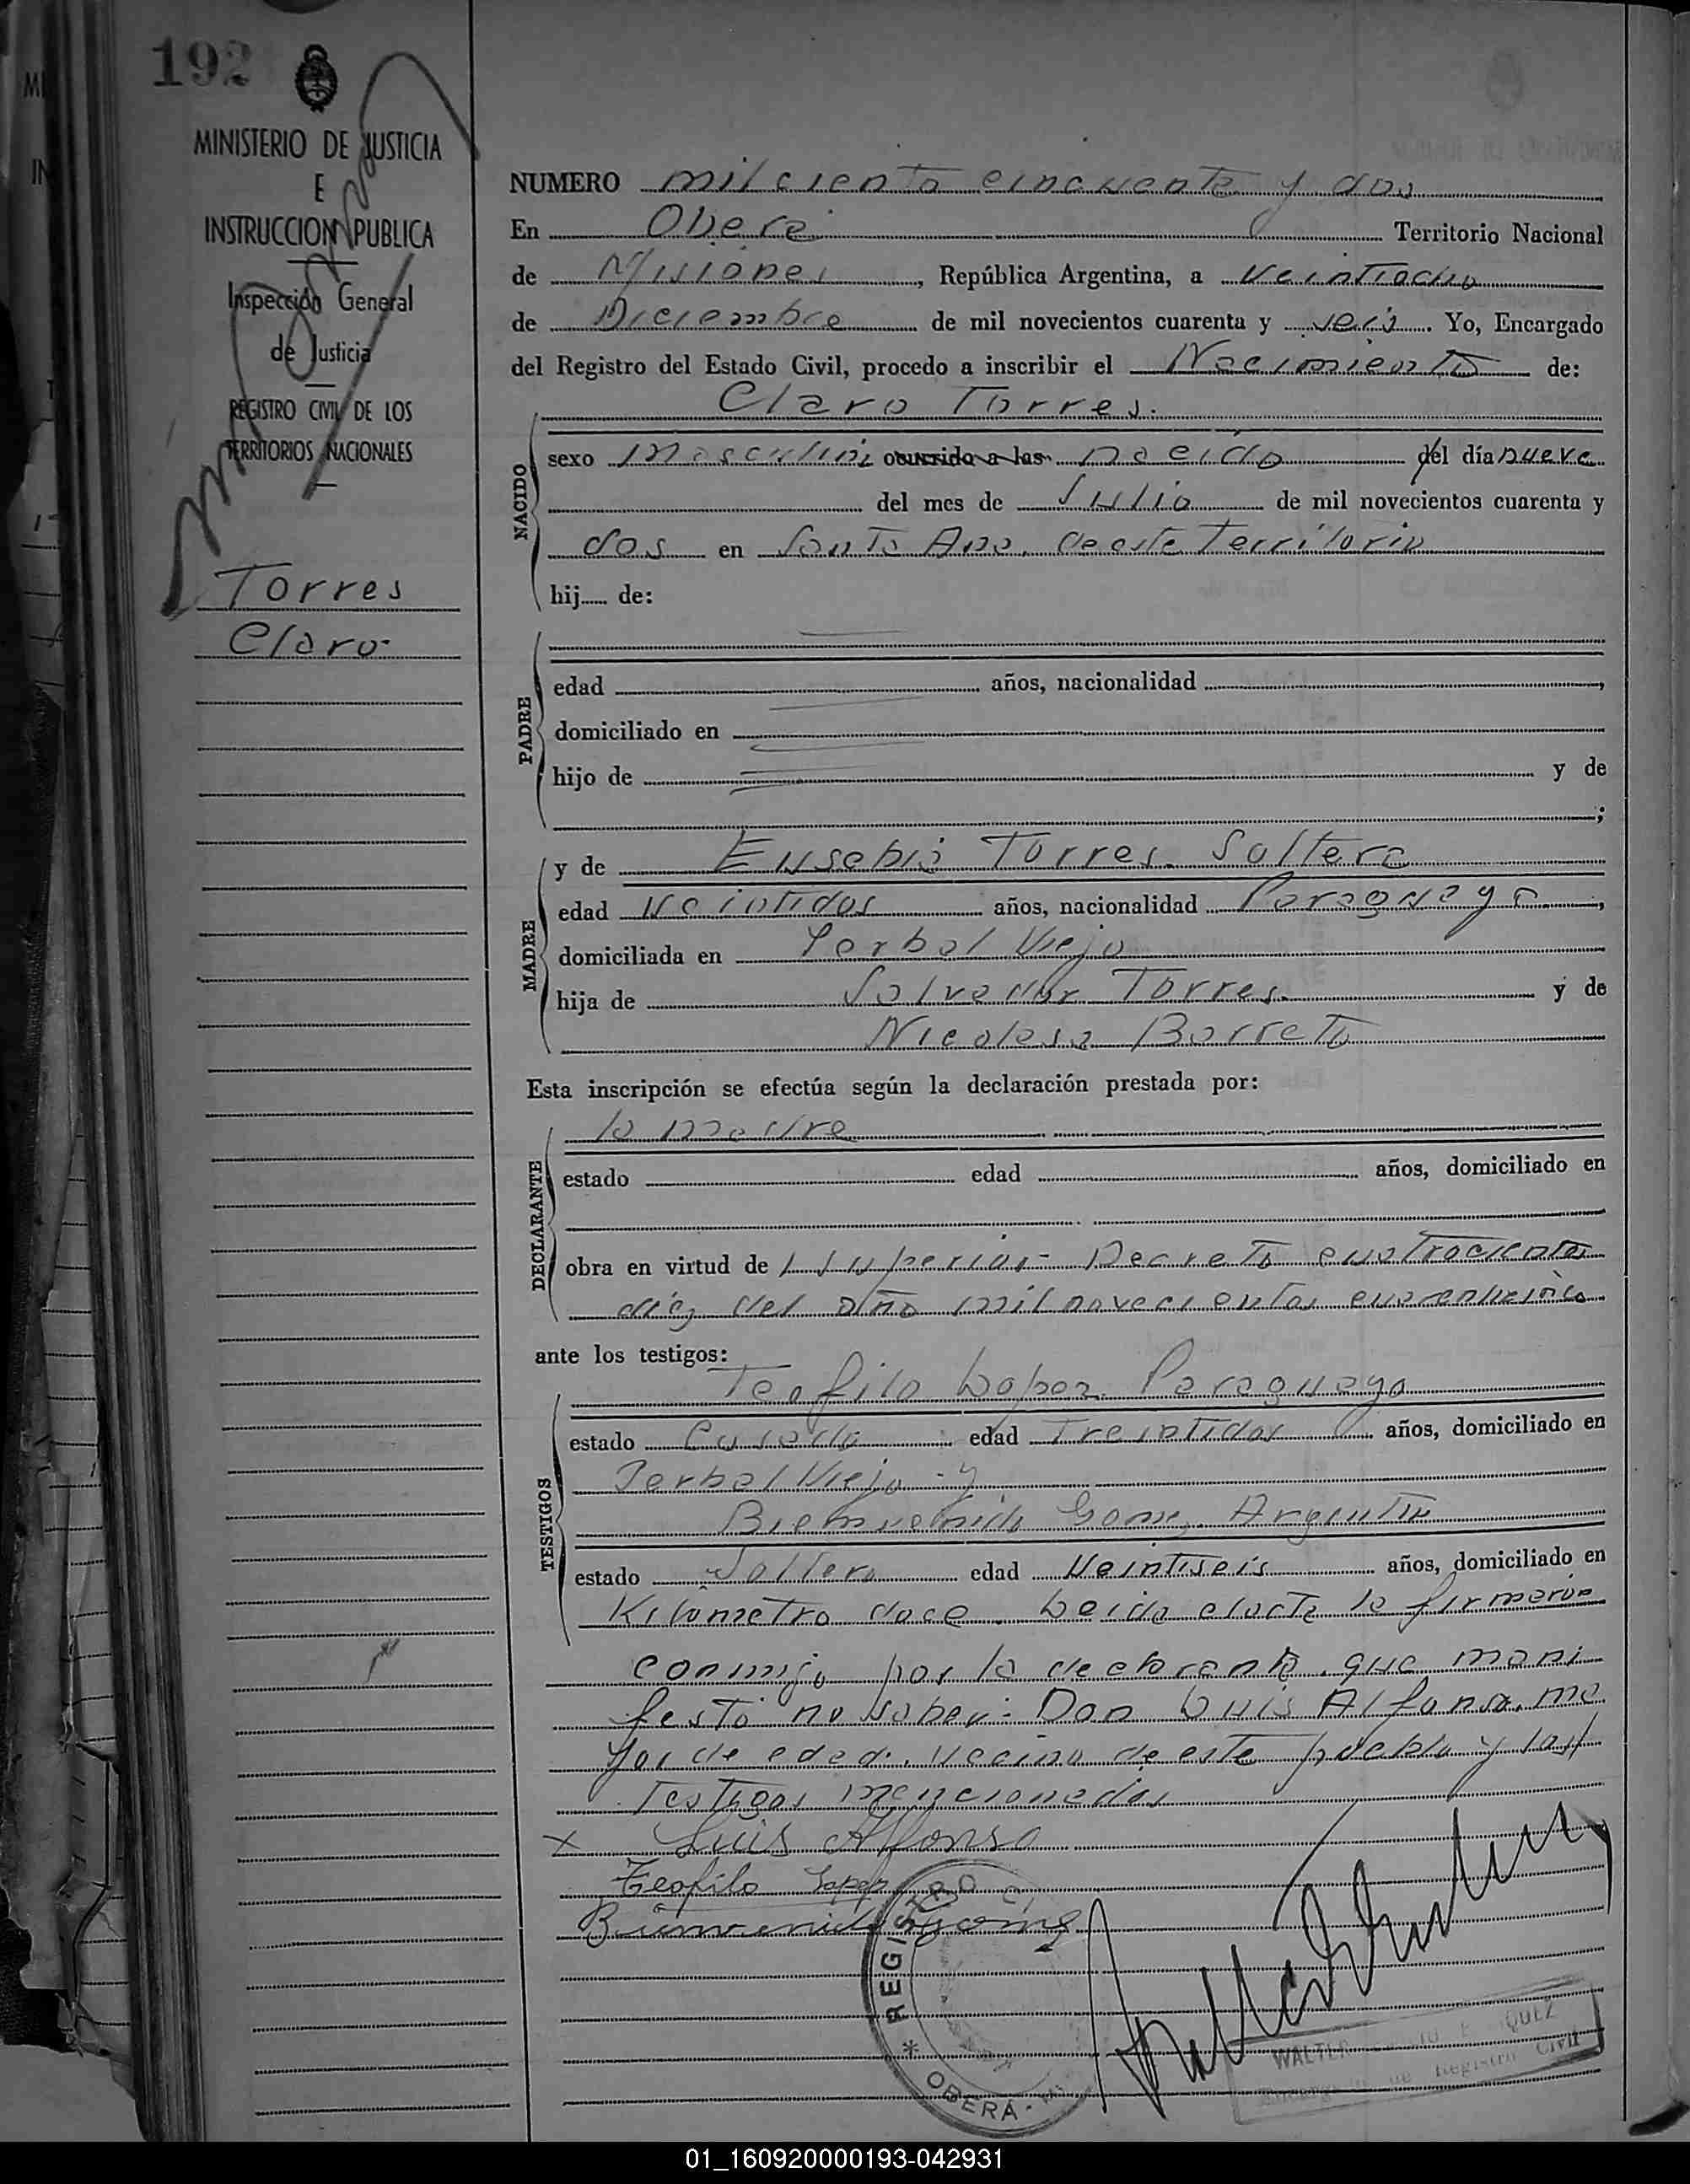 192
MINISTERIO DE JUSTICIA
E
INSTRUCCION PUBLICA
Inspección General
de Justicia
REGISTRO CIVIL DE LOS
TERRITORIOS NACIONALES
Torres
Claro
NUMERO mil ciento cincuenta y dos
En Oberá Territorio Nacional
de Misiones, República Argentina, a Veintiocho
de Diciembre de mil novecientos cuarenta y seis. Yo, Encargado
del Registro del Estado Civil, procedo a inscribir el Nacimiento de:
Claro Torres.
NACIDO
sexo masculino ocurrido a las nacido el día nueve
del mes de Julio de mil novecientos cuarenta y
dos en Santa Ana. de este Territorio
hij de:
PADRE
edad años, nacionalidad ,
domiciliado en
hijo de y de
;
MADRE
y de Eusebia Torres. Soltera
edad Veintidos años, nacionalidad Paraguaya ,
domiciliada en Yerbal Viejo
hija de Salvador Torres. y de
Nicolasa Barreto
Esta inscripción se efectúa según la declaración prestada por:
DECLARANTE
la madre
estado edad años, domiciliado en
obra en virtud de Superior Decreto cuatrocientos
diez del año mil novecientos
ante los testigos:
TESTIGOS
Teofilo Lopez Paraguayo
estado Casado edad Treintidos años, domiciliado en
Yerbal Viejo - y
Bienvenido Gomez Argentino
estado Soltero edad Veintiseis años, domiciliado en
Kilometro doce. Leida el acta la firmaron
conmigo por la declarante, que mani
festó no saber: Don Luis Alfonso. ma
yor de edad. vecino de este pueblo y los
testigos mencionados
x Luis Alfonso
Teofilo Lopez
Bienvenido Gomez
REGISTRO C
* OBERÁ -
WALTER
Registro Civil
01_160920000193-042931